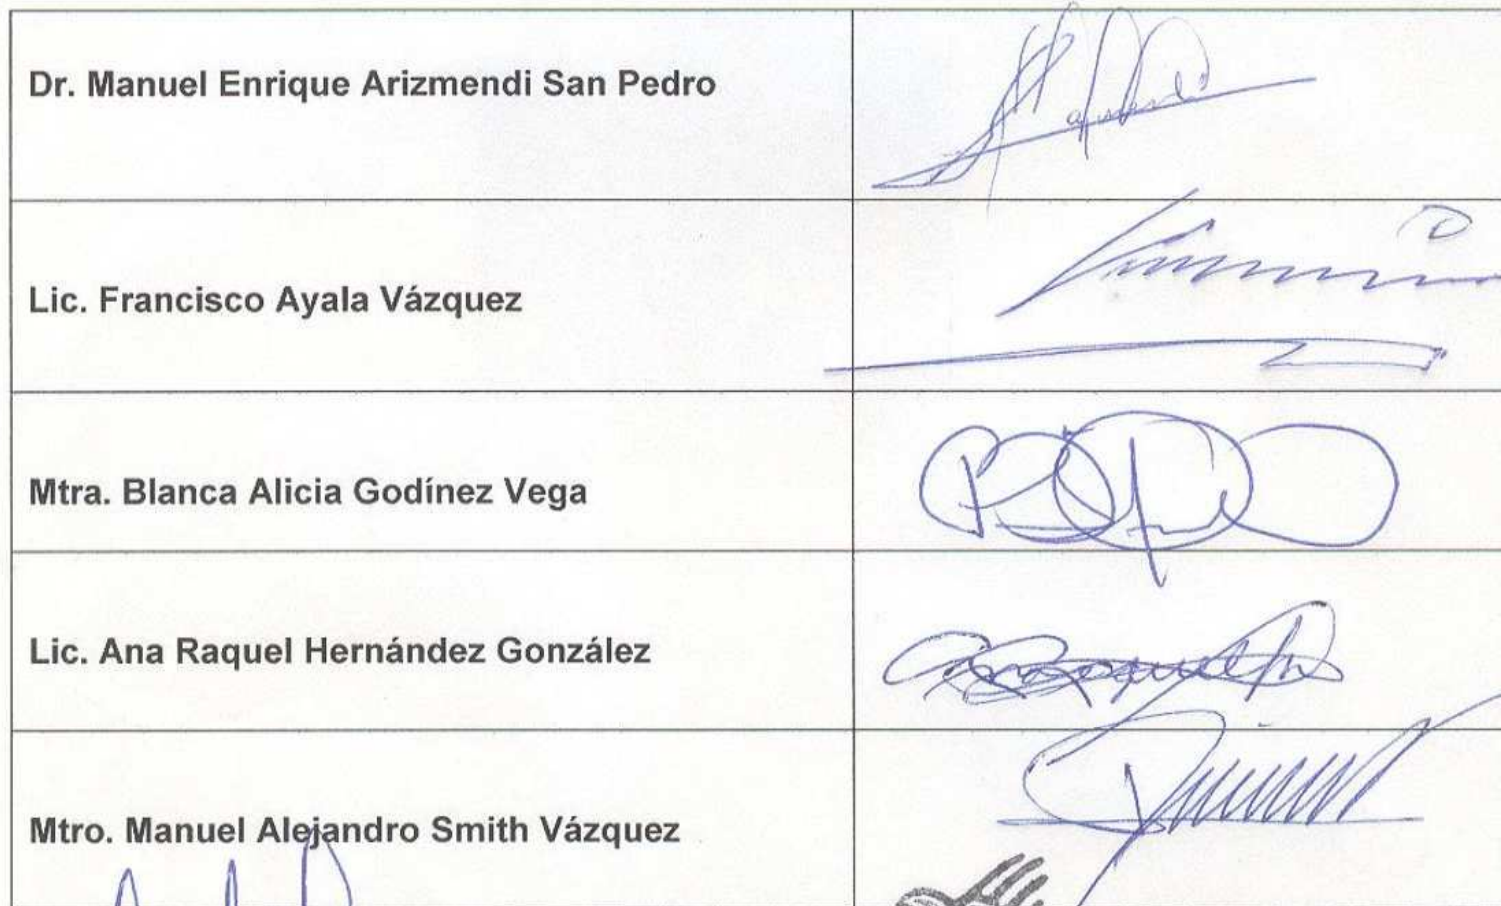 Dr. Manuel Enrique Arizmendi San Pedro
Lic. Francisco Ayala Vázquez
Mtra. Blanca Alicia Godínez Vega
Lic. Ana Raquel Hernández González
Mtro. Manuel Alejandro Smith Vázquez